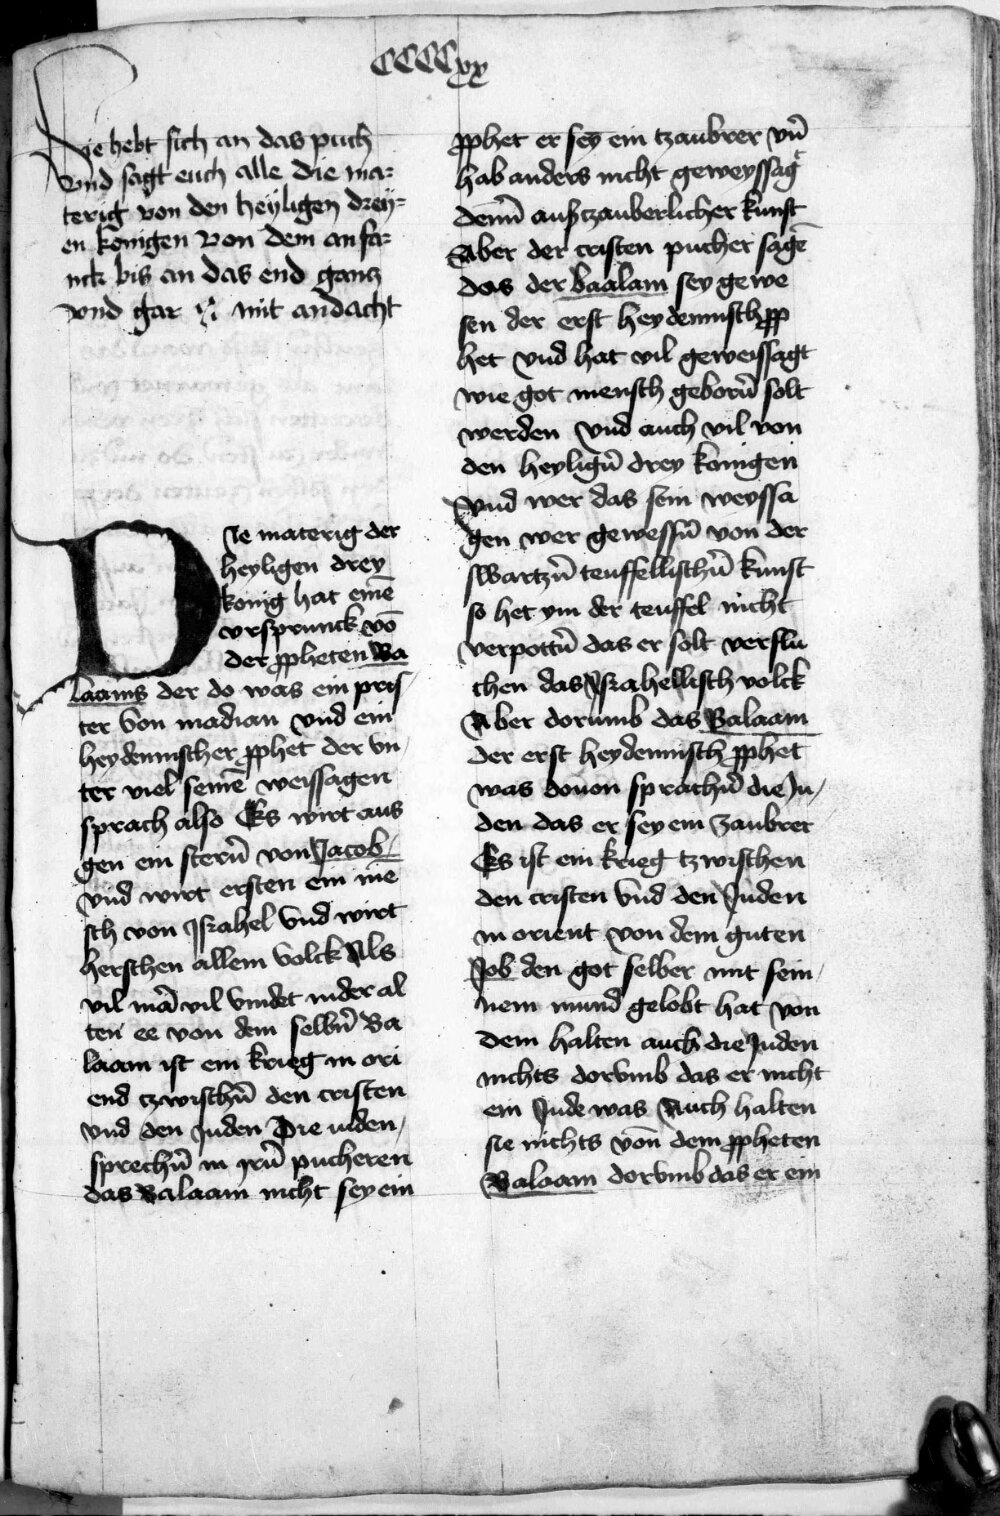 CCCCxx
Hie hebt sich an das puch
vnd sagt euch alle die ma-
terig von den heyligen drey-
en konigen von dem anfa-
nck bis an das end gancz
vnd gar mit andacht
Die materig der
heyligen drey
konig hat eine͂
vrsprunck vo͂
der ꝓpheten Ba
laams der do was ein pris
ter von madian vnd ein
heydennischer ꝓphet der vn
ter viel seine͂ weissagen
sprach also Es wirt aus
gen ein stern̄ von Jacob
vnd wirt ersten ein me͂
sch von Israhel vnd wirt
herschen allem volck Als
vil ma͂ vil vindet in der al
ten ee von dem selbn̄ Ba
laam ist ein krieg in ori
end czwischn̄ den cristen
vnd den Juden Die iuden
sprechn̄ in irn̄ pucheren
das Balaam nicht sey ein
ꝓphet er sey ein tzaubrer vn̄
hab anders nicht geweyssagt
denn̄ auß tzauberlicher kunst
Aber der cristen pucher sage͂
das der baalam sey gewe
sen der erst heydennisch ꝓp
het vnd hat vil geweissagt
wie got mensch geborn̄ solt
werden vnd auch vil von
den heylign̄ drey konigen
vnd wer das sein weyssa
gen wer gewessn̄ von der
swartzn̄ teuffellischn̄ kunst
so het ym der teuffel nicht
verpottn̄ das er solt verflu
chen das Israhellisch volck
Aber dorumb das Balaam
der erst heydennisch ꝓphet
was douon sprachn̄ die Ju
den das er sey ein zaubrer
Es ist ein krieg tzwischen
den cristen vnd den Juden
in orient von dem guten
Job den got selber mit sein
nem mund gelobt hat von
dem halten auch die Juden
nichts dorvmb das er nicht
ein Jude was Auch halten
sie nichts von̄ dem ꝓpheten
Balaam dorvmb das er ein